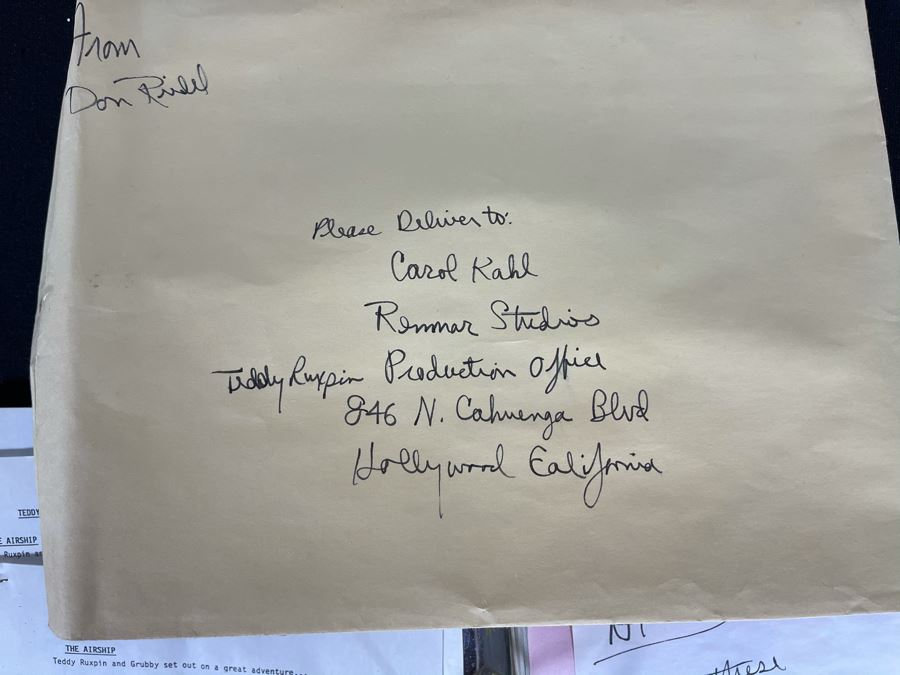 From
Don Riedel
Please Deliver to:
Carol Kahl
Renmar Studios
Teddy Ruxpin Production Office
846 N. Cahuenga Blvd
Hollywood California
TEDDY
E AIRSHIP
Ruxpin an
THE AIRSHIP
Teddy Ruxpin and Grubby set out on a great adventure...
these